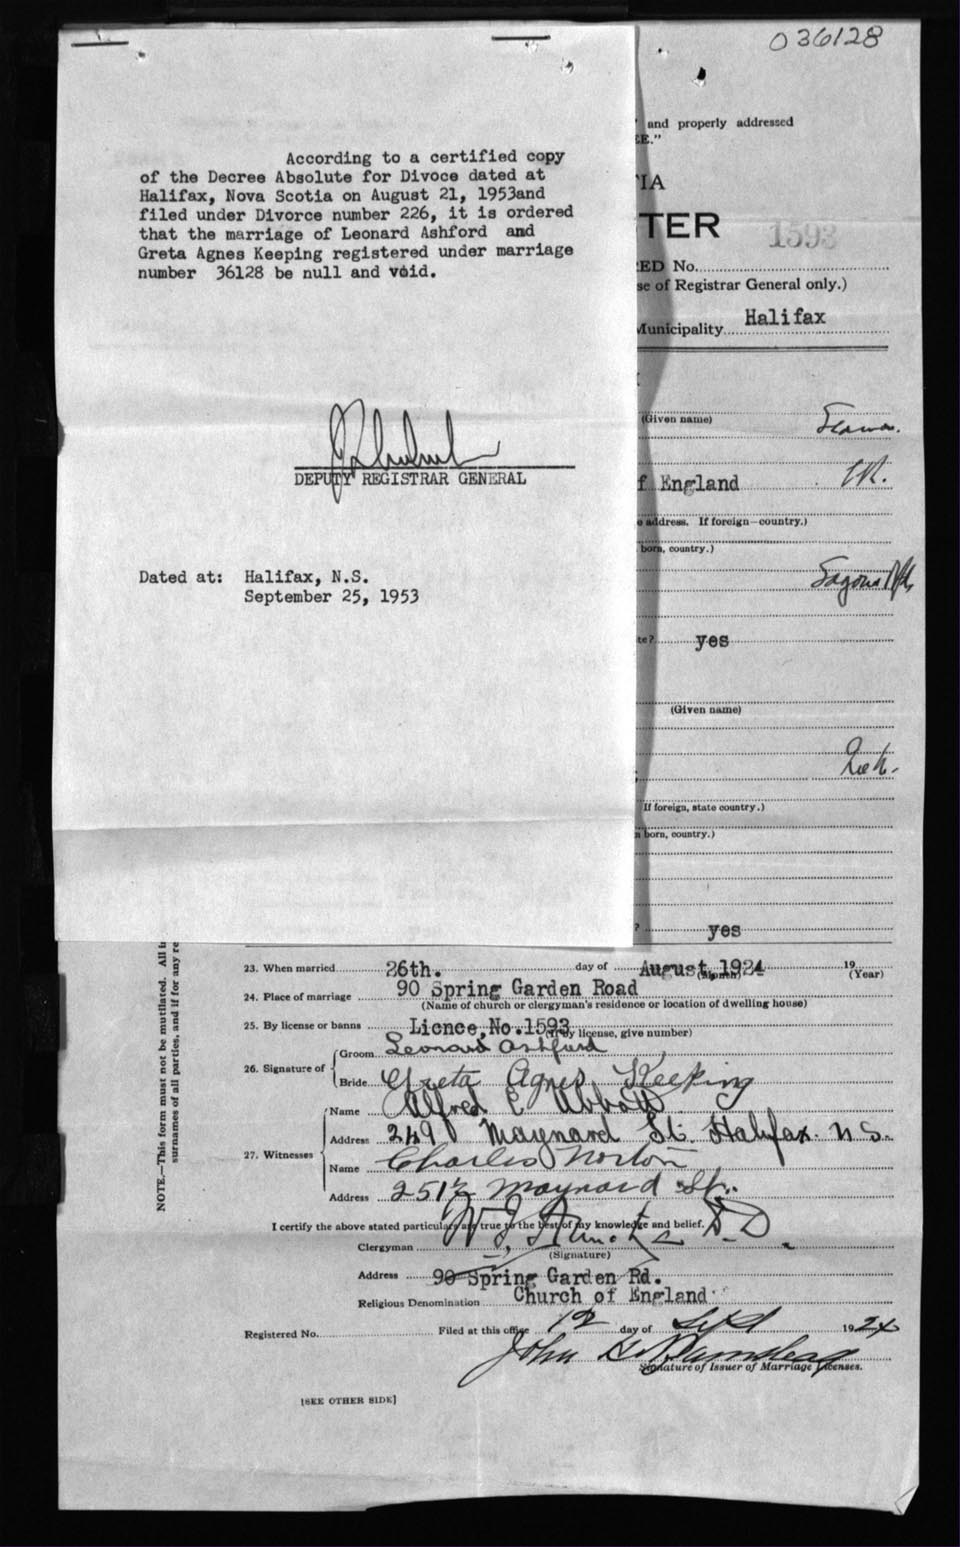 036128
According to a certified copy
of the Decree Absolute for Divoce dated at
Halifax, Nova Scotia on August 21, 1953and
filed under Divorce number 226, it is ordered
that the marriage of Leonard Ashford and
Greta Agnes Keeping registered under marriage
number 36128 be null and void.
DEPUTY REGISTRAR GENERAL
Dated at: Halifax, N.S.
September 25, 1953
and properly addressed
E."
IA
TER 1593
ED No.
se of Registrar General only.)
Municipality Halifax
(Given name)
f England
e address. If foreign—country.)
born, country.)
te? yes
(Given name)
If foreign, state country.)
n born, country.)
? yes
NOTE.—This form must not be mutilated. All i
surnames of all parties, and if for any re
23. When married 26th. day of August, 1924 19
(Month) (Year)
24. Place of marriage 90 Spring Garden Road
(Name of church or clergyman's residence or location of dwelling house)
25. By license or banns Licnce, No. 1593
(If by license, give number)
26. Signature of
Groom Leonard Ashford
Bride Greta Agnes Keeping
27. Witnesses
Name Alfred E Abbott
Address 249 Maynard St. Halifax. N S.
Name Charles Norton
Address 251½ Maynard St.
I certify the above stated particulars are true to the best of my knowledge and belief.
Clergyman D.D.
(Signature)
Address 90 Spring Garden Rd.
Religious Denomination Church of England
Registered No. Filed at this office day of Sept 1924
John
Signature of Issuer of Marriage Licenses.
[SEE OTHER SIDE]